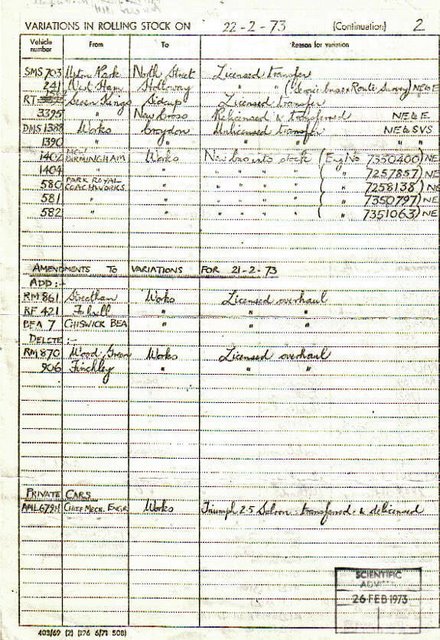 VARIATIONS IN ROLLING STOCK ON 22-2-73 (Continuation) 2
Vehicle number From To Reason for variation
SMS 703 Upton Park North Street Licensed transfer
241 West Ham Holloway " " ( Route Survey) NE&E
RT Seven Kings Sidcup Licensed transfer
3395 " New Cross Relicensed & transferred NE & E.
DMS 1388 Works Croydon Unlicensed transfer NE & SVS
1390 " " " " " "
1402 BIRMINGHAM Works New bus into stock (Eng No 7350400) NE
1404 " " " " " " ( " 7257857) NE
580 PARK ROYAL COACHWORKS " " " " " ( " 7258138) NE
581 " " " " " " ( " 7350797) NE
582 " " " " " " ( " 7351063) NE
AMENDMENTS TO VARIATIONS FOR 21-2-73
ADD :-
RM 861 Streatham Works Licensed overhaul
RF 421 " " "
BEA 7 CHISWICK BEA " " "
DELETE :-
RM 870 Wood Green Works Licensed overhaul
906 Finchley " " "
PRIVATE CARS
CHIEF MECH. ENGR Works Triumph 2.5 Saloon - transferred & delicensed
SCIENTIFIC
26 FEB 1973